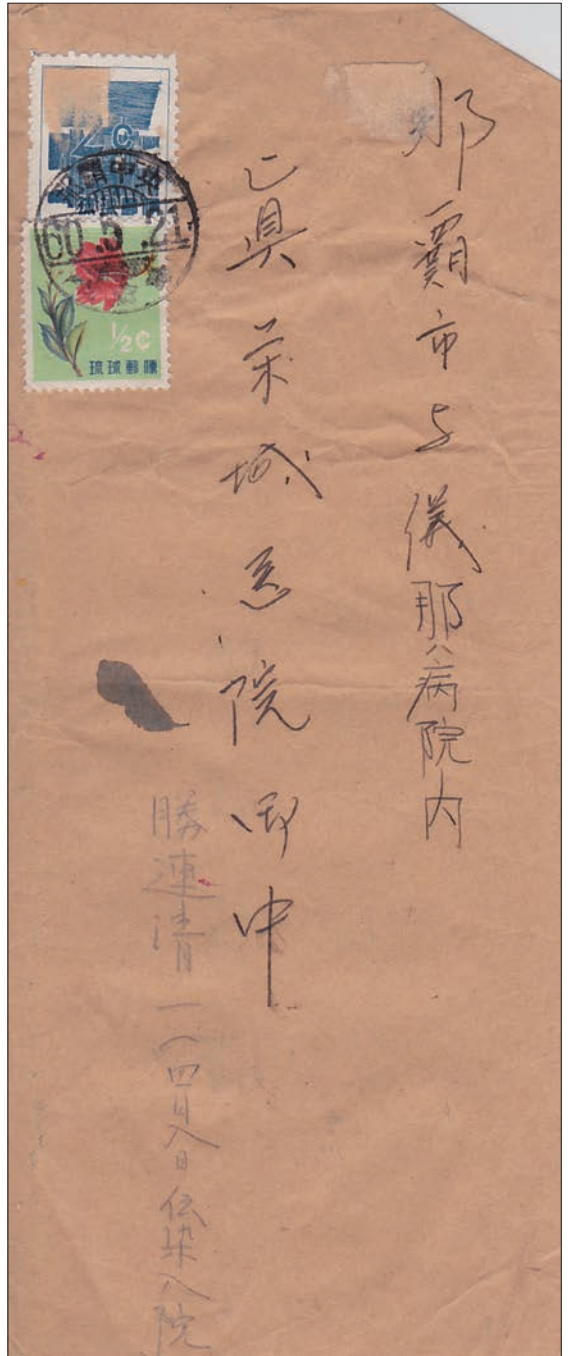 那覇市与儀那ハ病院内
眞栄城医院御中
勝連清一
四月八日伝染入院
¢
60.5.21
½¢
琉球郵便